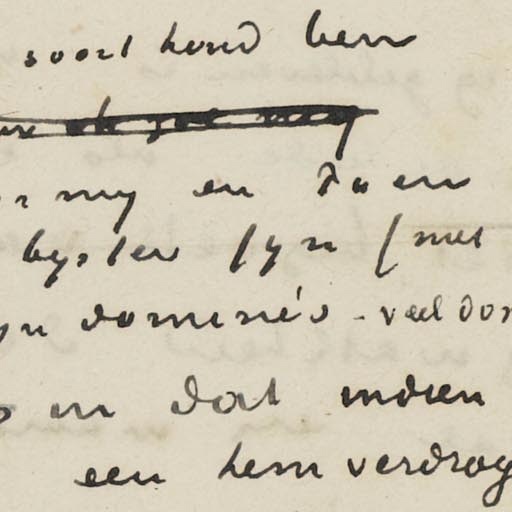 soort hond ben
my en daar
byster fyn (met
dominé's - veel don
en dat indien
een hem verdrog